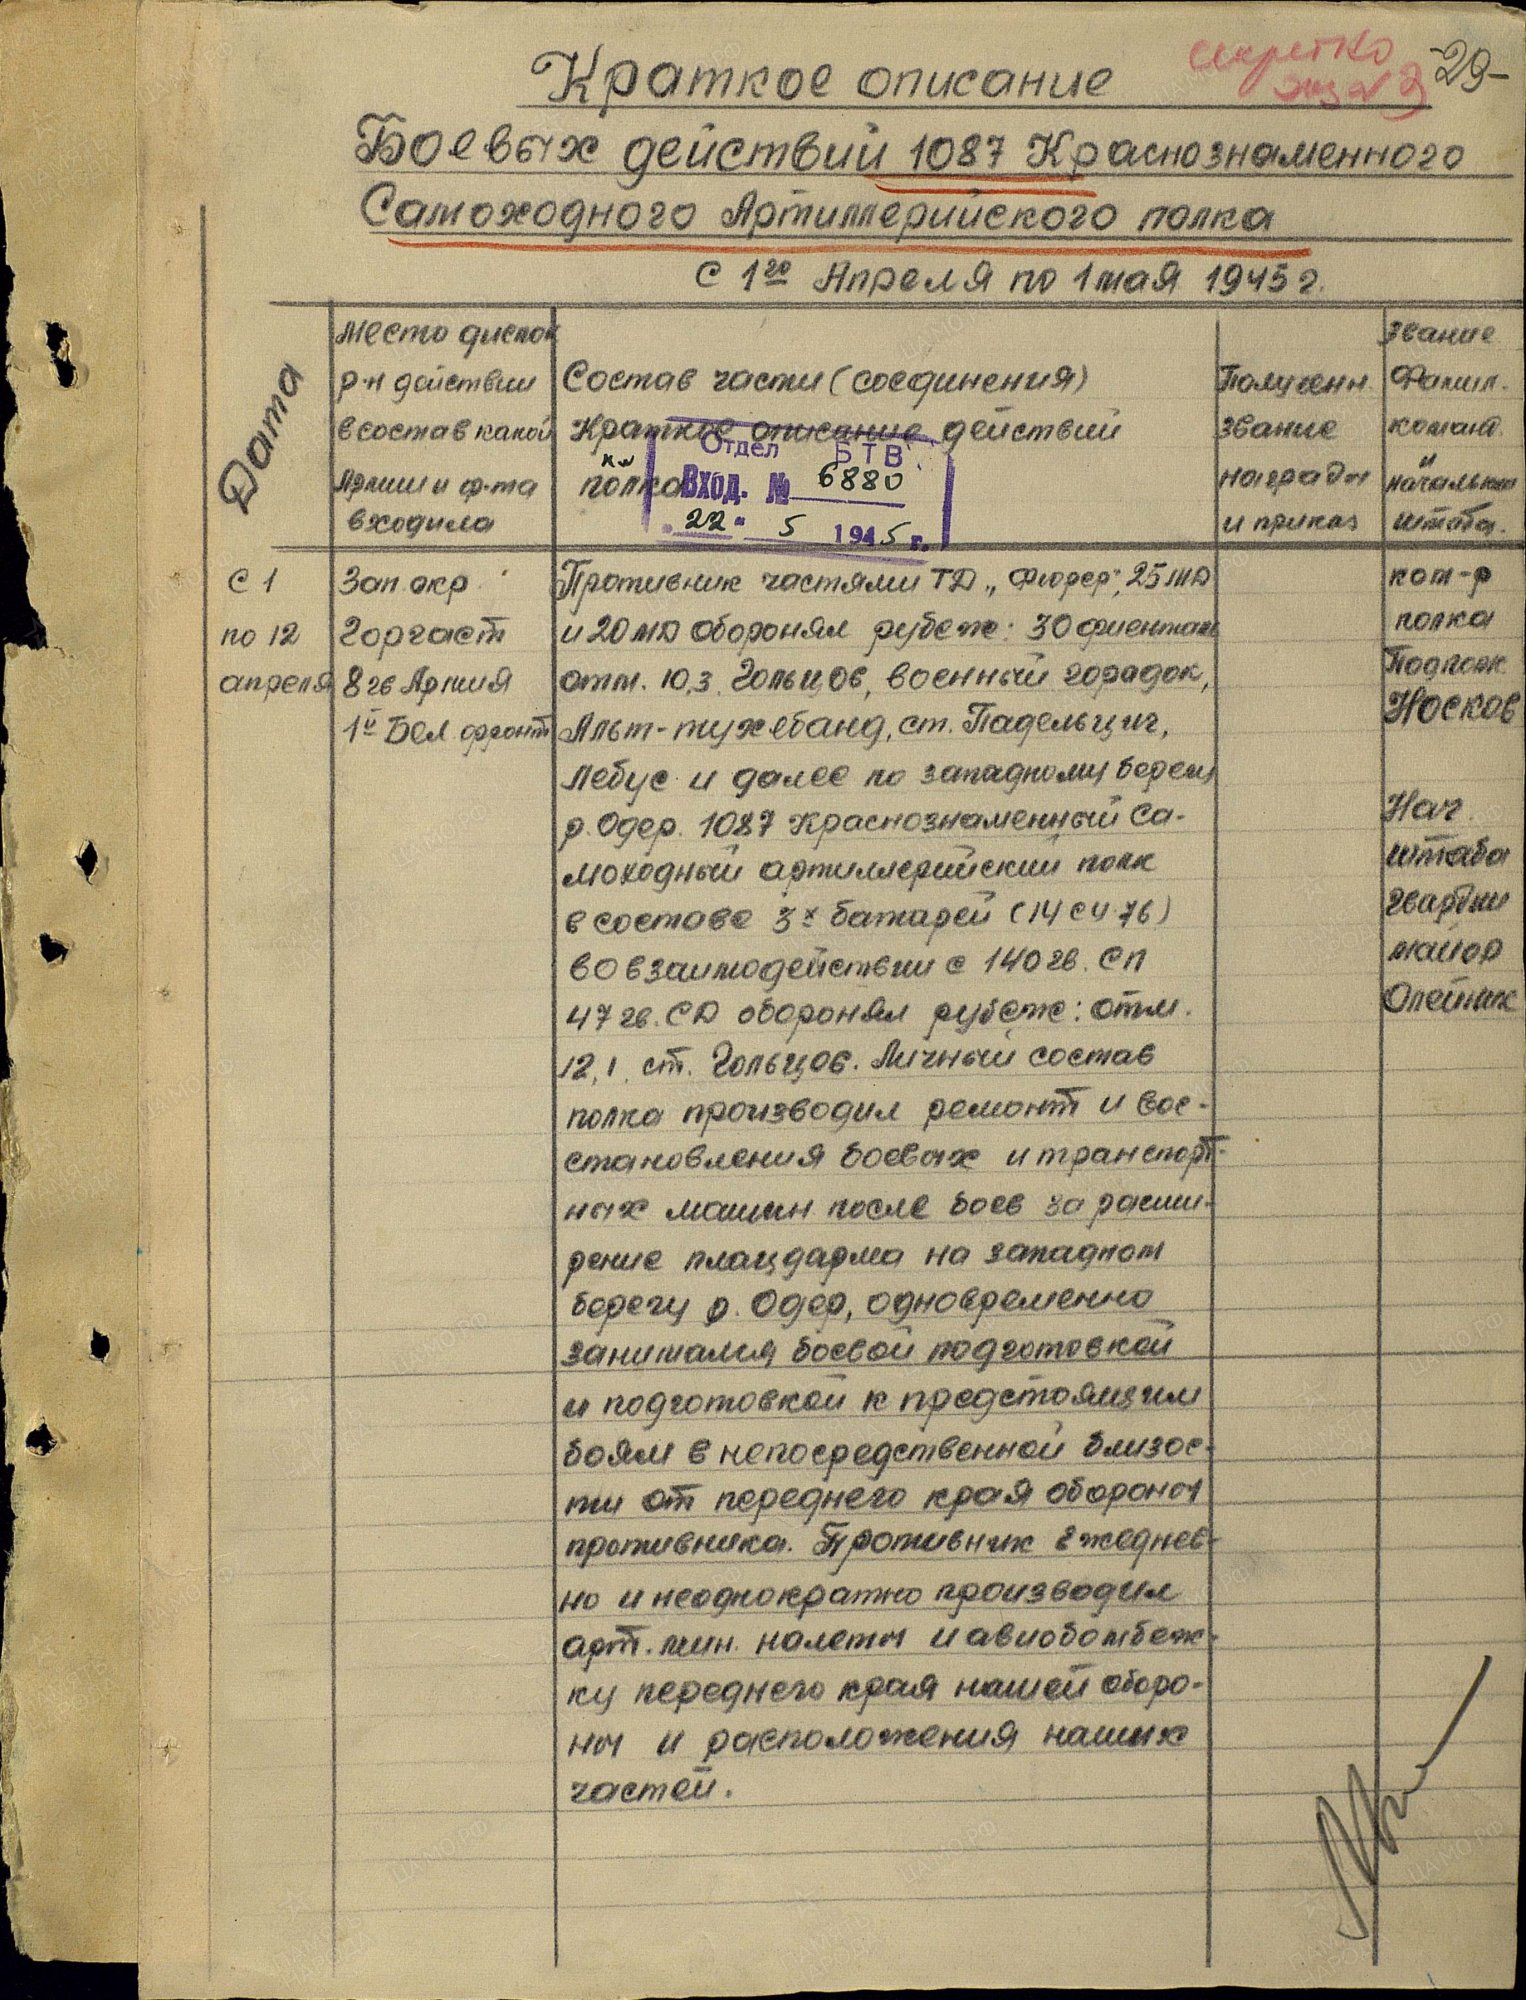 Секретно
экз №2
-29-
Краткое описание
Боевых действий 1087 Краснознаменного
Самоходного Артиллерийского полка
С 1го Апреля по 1 мая 1945 г.
Дата
Место дислок
р-н действии
в состав какой
Армии и ф-та
входила
Состав части (соединения)
Краткое описание действий
полка
Отдел БТВ
Вход. № 6880
"22" 5 1945 г.
Получен.
звание
наград
и приказ
Звание
Фамил.
команд.
и
начальник
штаба.
С 1
по 12
апреля
Зап. окр.
Горгаст
8 гв Армия
1й Бел. фронт
Противник частями ТД „Фюрер", 25 МД
и 20 МД оборонял рубеж:
отм. 10,3, Гольцов, военный городок,
Альт-тухебанд, ст. Падельциг,
Лебус и далее по западному берегу
р. Одер. 1087 Краснознаменный Са-
моходный артиллерийский полк
в составе 3х батарей (14 СУ-76)
во взаимодействии с 140 гв. СП
47 гв. СД оборонял рубеж: отм.
12,1, ст. Гольцов. Личный состав
полка производил ремонт и вос-
становления боевых и транспорт-
ных машин после боев за расши-
рение плацдарма на западном
берегу р. Одер, одновременно
занимался боевой подготовкой
и подготовкой к предстоящим
боям в непосредственной близос-
ти от переднего края обороны
противника. Противник ежеднев-
но и неоднократно производил
арт. мин. налеты и авиобомбеж-
ку переднего края нашей оборо-
ны и расположения наших
частей.
ком-р
полка
Подполк
Носков
Нач.
штаба
гвардии
майор
Олейник